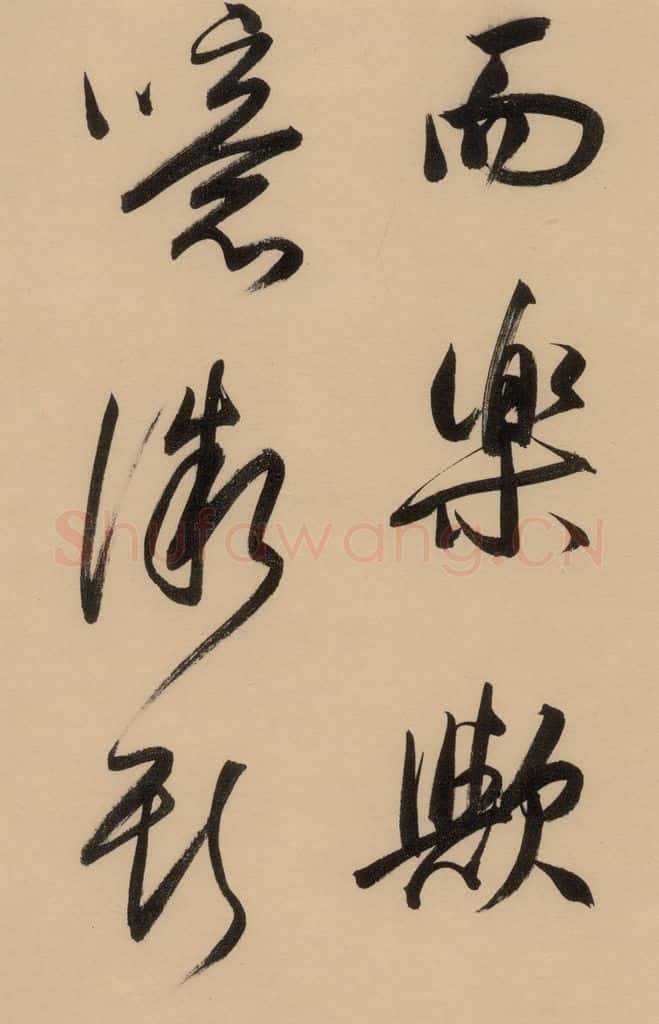 而樂歟
噫微斯
Shufawang.CN